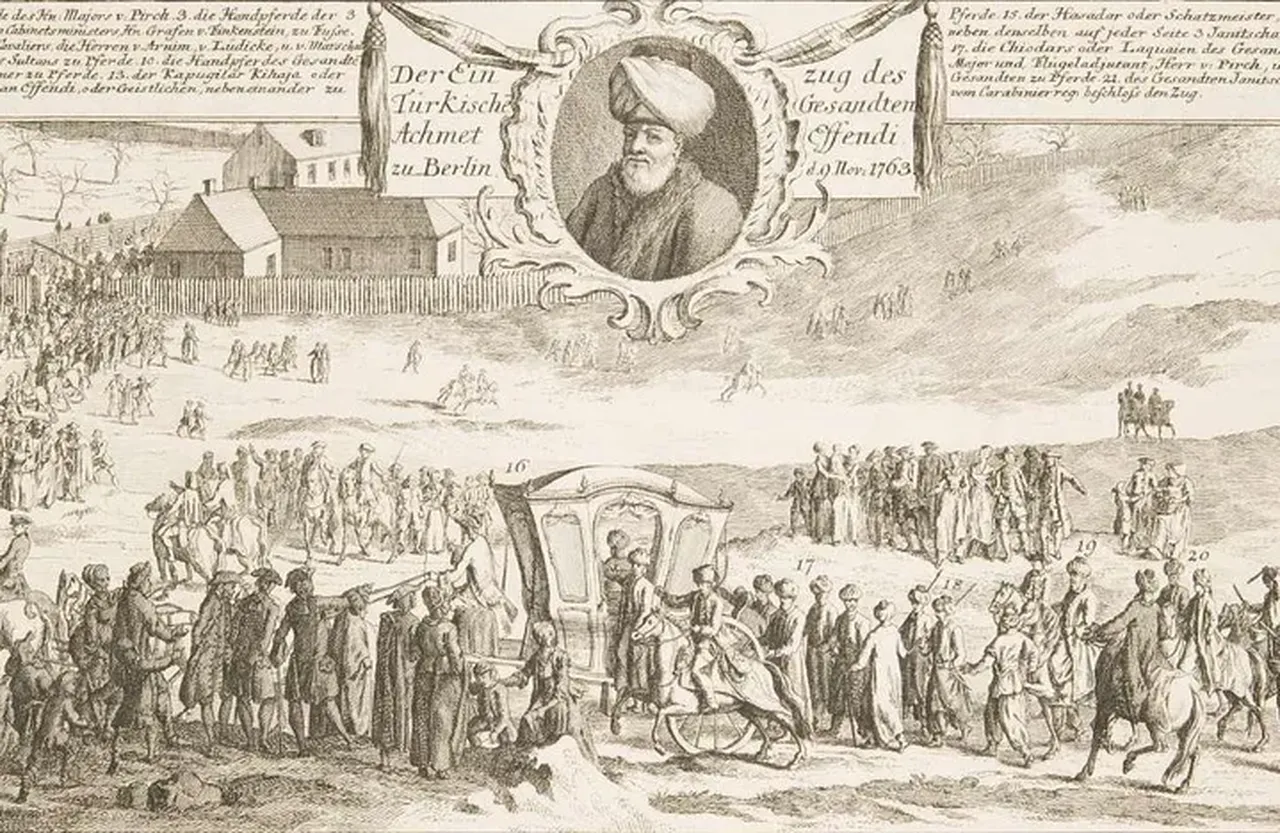 de des Hn. Majors v. Pirch. 3. die Handpferde der 3
Cabinetsministers Hn. Grafen v. Finkenstein, zu Fusse.
Cavaliers, die Herren v. Arnim, v. Lüdicke, u. v. Marscha
s Sultans zu Pferde. 10. die Handpferdes des Gesandte
ner zu Pferde. 13. der Kapugilar Kihaja oder
an Effendi, oder Geistlichen, neben einander zu
Der Ein zug des
Türkische Gesandten
Achmet Effendi
zu Berlin d. 9 Nov. 1763.
Pferde. 15. der Hasadar oder Schatzmeister
neben denselben auf jeder Seite 3 Janitscha
17. die Chiodars oder Laquaien des Gesan
Major und Flügeladjutant, Herr v. Pirch, u
Gesandten zu Pferde 21. des Gesandten Janitsc
vom Carabinier reg. beschloss den Zug.
16
17
18
19
20